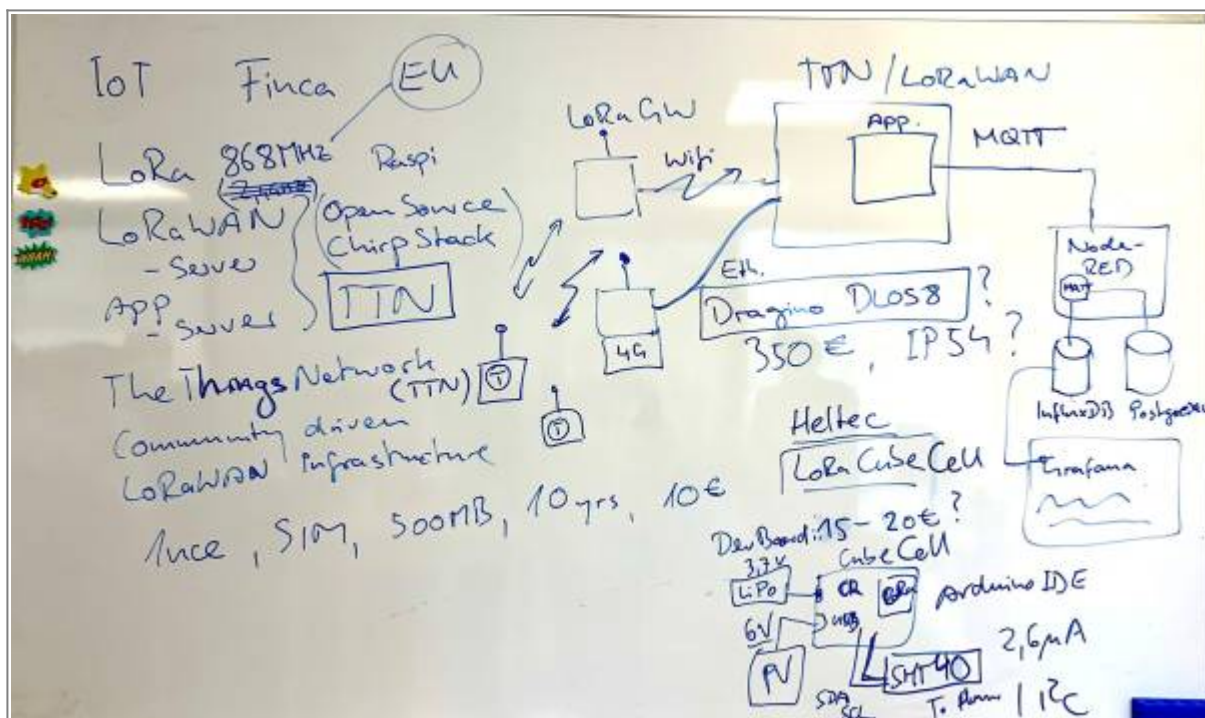 IoT Finca EU
LoRa 868MHz Raspi
LoRaWAN
- Server
App
- Server
(Open Source
ChirpStack)
TTN
The Things Network
(TTN)
Community driven
LoRaWAN Infrastructure
1nce, SIM, 500MB, 10yrs, 10€
LoRa GW
Wifi
4G
T
T
TTN/LoRaWAN
App.
MQTT
Eth.
Dragino DLOS8 ?
350€, IP54?
Node-
RED
InfluxDB
Grafana
Heltec
LoRa CubeCell
DevBoard: 15-20€?
CubeCell
3,7V
LiPo
USB
6V
PV
Arduino IDE
SHT40
2,6µA
SDA
SCL
I²C